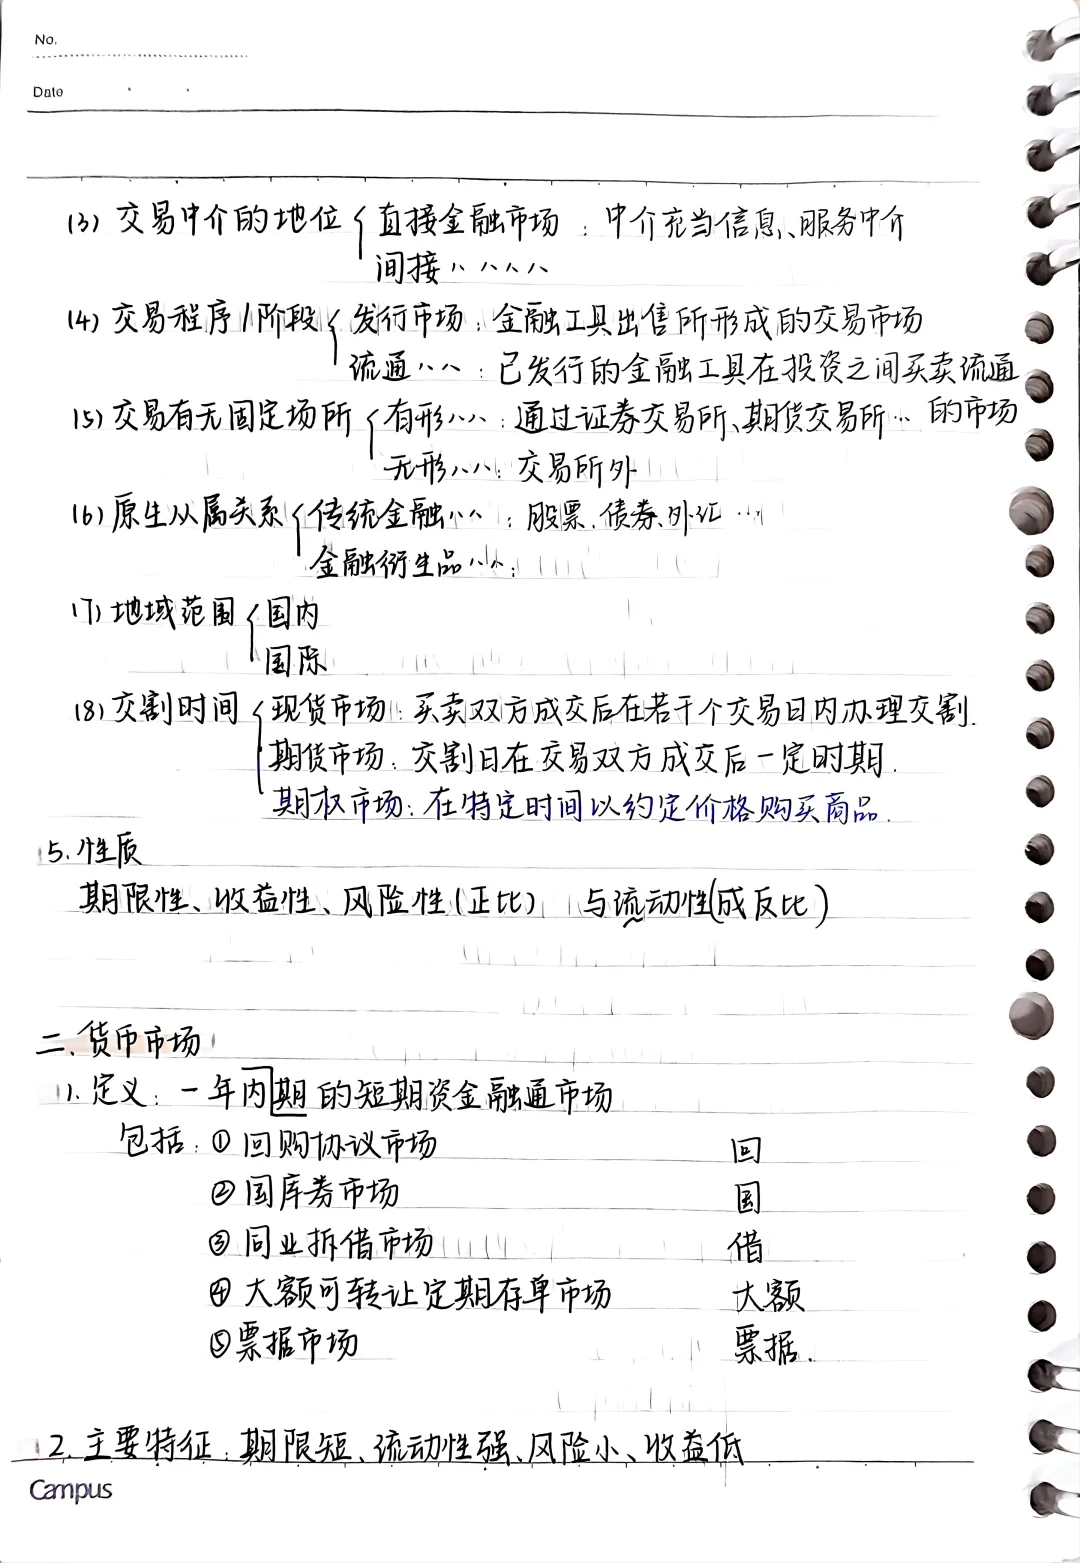 No.
Date
(3) 交易中介的地位 { 直接金融市场：中介充当信息、服务中介
间接〃〃〃〃
(4) 交易程序/阶段 { 发行市场：金融工具出售所形成的交易市场
流通〃〃：已发行的金融工具在投资之间买卖流通
(5) 交易有无固定场所 { 有形〃〃：通过证券交易所、期货交易所… 的市场
无形〃〃：交易所外
(6) 原生从属关系 { 传统金融〃〃：股票、债券、外汇…
金融衍生品〃〃：
(7) 地域范围 { 国内
国际
(8) 交割时间 { 现货市场：买卖双方成交后在若干个交易日内办理交割.
期货市场：交割日在交易双方成交后一定时期.
期权市场：在特定时间以约定价格购买商品.
5. 性质
期限性、收益性、风险性(正比) 与流动性(成反比)
二、货币市场
1. 定义：一年内期的短期资金融通市场
包括：① 回购协议市场 回
② 国库券市场 国
③ 同业拆借市场 借
④ 大额可转让定期存单市场 大额
⑤ 票据市场 票据.
2. 主要特征：期限短、流动性强、风险小、收益低
Campus